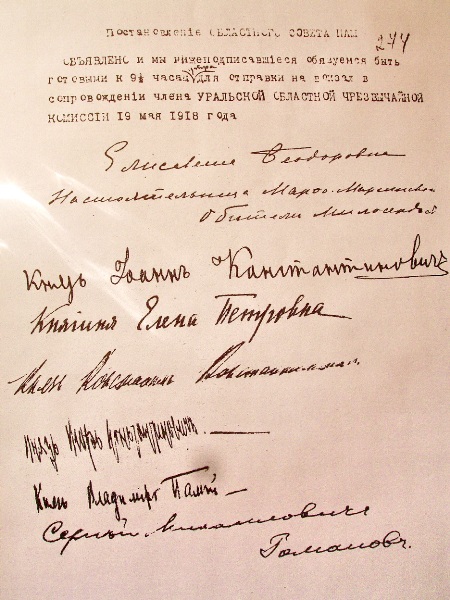 Постановленіе ОБЛАСТНОГО СОВЕТА НАМ
274
ОБЪЯВЛЕНО и мы нижеподписавшіеся обязуемся быть
готовыми к 9½ часам утра для отправки на вокзал в
сопровожденіи члена УРАЛЬСКОЙ ОБЛАСТНОЙ ЧРЕЗВЫЧАЙНОЙ
КОМИССІИ 19 мая 1918 года
Елисавета Феодоровна
Настоятельница Марфо-Мариинской
Обители Милосердія
Князь Іоаннъ Константиновичъ
Княгиня Елена Петровна
Князь Константинъ Константиновичъ
Князь Игорь Константиновичъ
Князь Владиміръ Палѣй
Сергѣй Михаиловичъ
Романовъ.